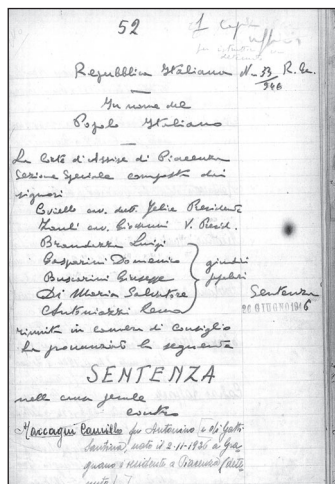 52
1 Copia
Repubblica Italiana N. 33 R. Gen.
946
In nome del
Popolo Italiano
La Corte di Assise di Piacenza
Sezione Speciale composta dai
signori
Coviello cav. dott. Felice Presidente
Zanli cav. Giovanni V. Presid.
Brandazza Luigi
Gasparini Domenico
Busconi Giuseppe
giudici
popolari
Di Maria Salvatore
Antoniazzi Remo
Sentenza
20 GIUGNO 1946
riunita in camera di Consiglio
ha pronunciato la seguente
SENTENZA
nella causa penale
contro
Maccagni Camillo fu Antonino e di Gatti
Santina, nato il 2-11-1926 a Gra-
gnano e residente a Piacenza (dete-
nuto)